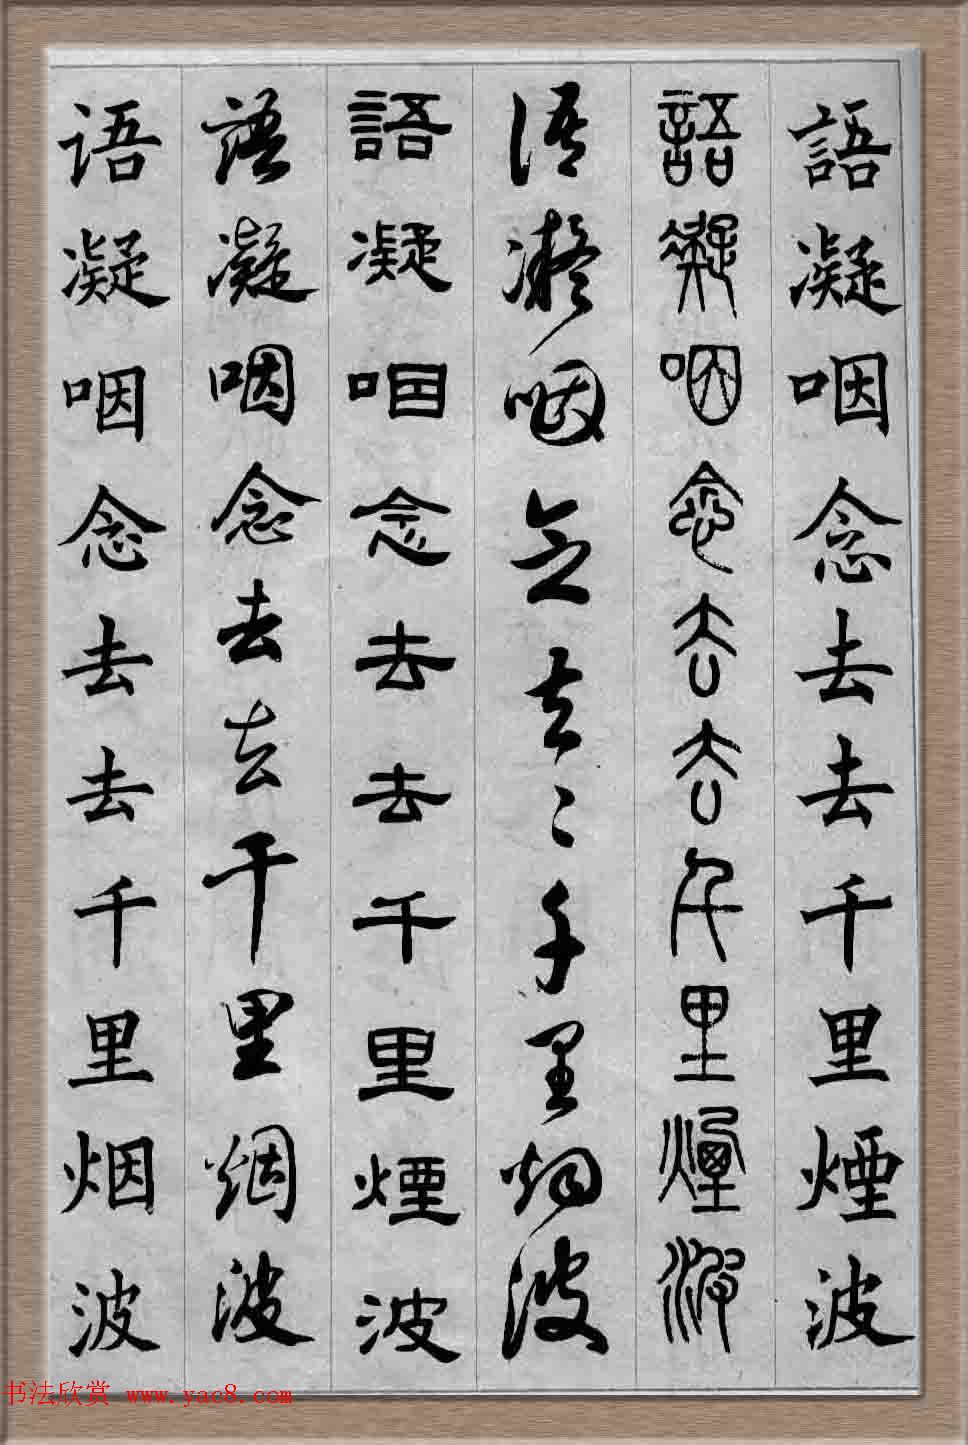 語凝咽念去去千里煙波
語凝咽念去去千里煙波
语凝咽念去〻千里烟波
語凝咽念去去千里煙波
语凝咽念去去千里烟波
语凝咽念去去千里烟波
书法欣赏 www.yac8.com